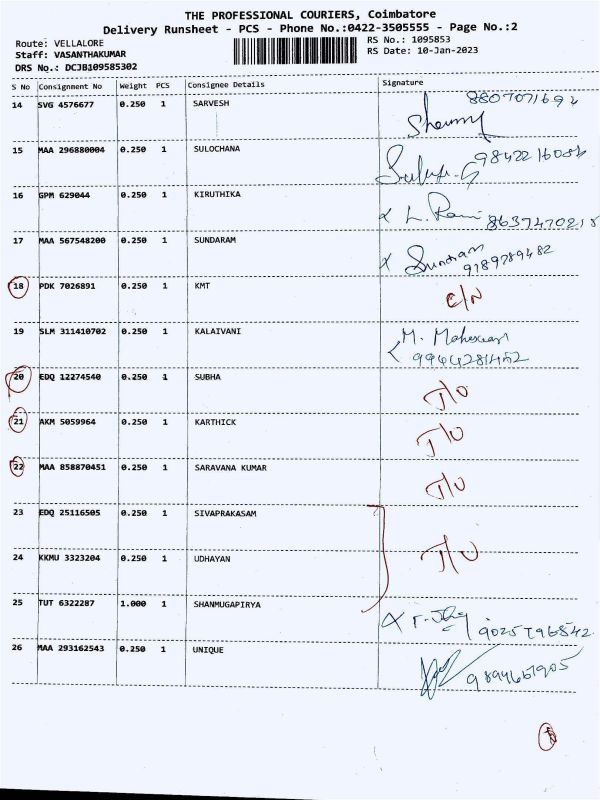 THE PROFESSIONAL COURIERS, Coimbatore
Delivery Runsheet - PCS - Phone No.:0422-3505555 - Page No.:2
Route: VELLALORE
Staff: VASANTHAKUMAR
DRS No.: DCJB109585302
RS No.: 1095853
RS Date: 10-Jan-2023
S No Consignment No Weight PCS Consignee Details Signature
14 SVG 4576677 0.250 1 SARVESH
15 MAA 296880004 0.250 1 SULOCHANA
16 GPM 629044 0.250 1 KIRUTHIKA
17 MAA 567548200 0.250 1 SUNDARAM
18 PDK 7026891 0.250 1 KMT C/N
19 SLM 311410702 0.250 1 KALAIVANI
20 EDQ 12274540 0.250 1 SUBHA
21 AKM 5059964 0.250 1 KARTHICK
22 MAA 858870451 0.250 1 SARAVANA KUMAR
23 EDQ 25116505 0.250 1 SIVAPRAKASAM
24 KKMU 3323204 0.250 1 UDHAYAN
25 TUT 6322287 1.000 1 SHANMUGAPIRYA
26 MAA 293162543 0.250 1 UNIQUE